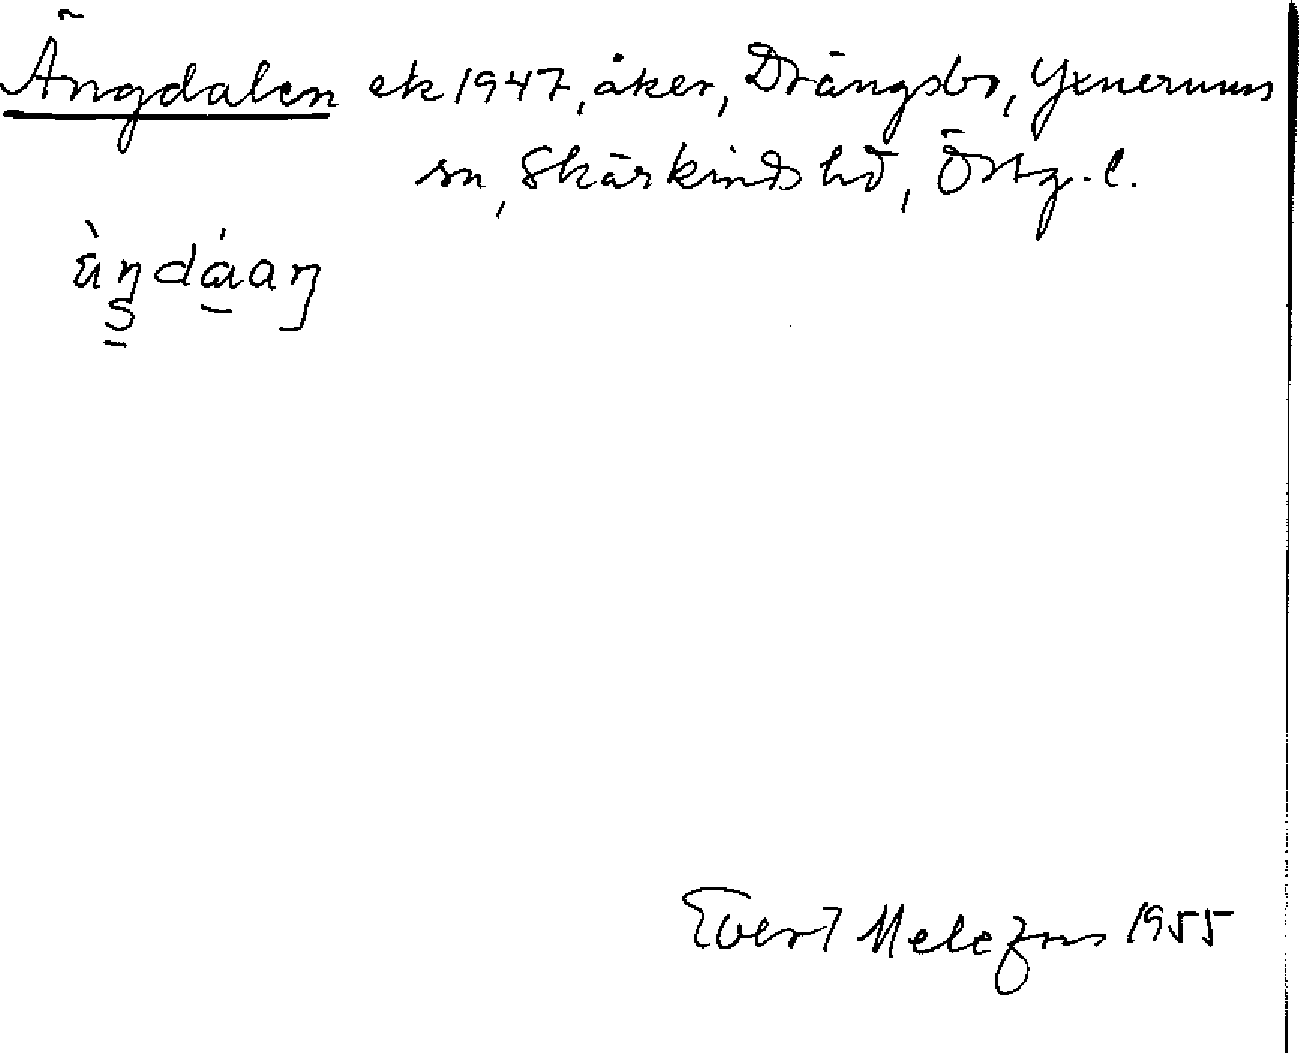 Ängdalen ek 1947, åker, Drängsbo, Yxnerums
sn, Skärkinds hd, Östg. l.
Evert Melefors 1955